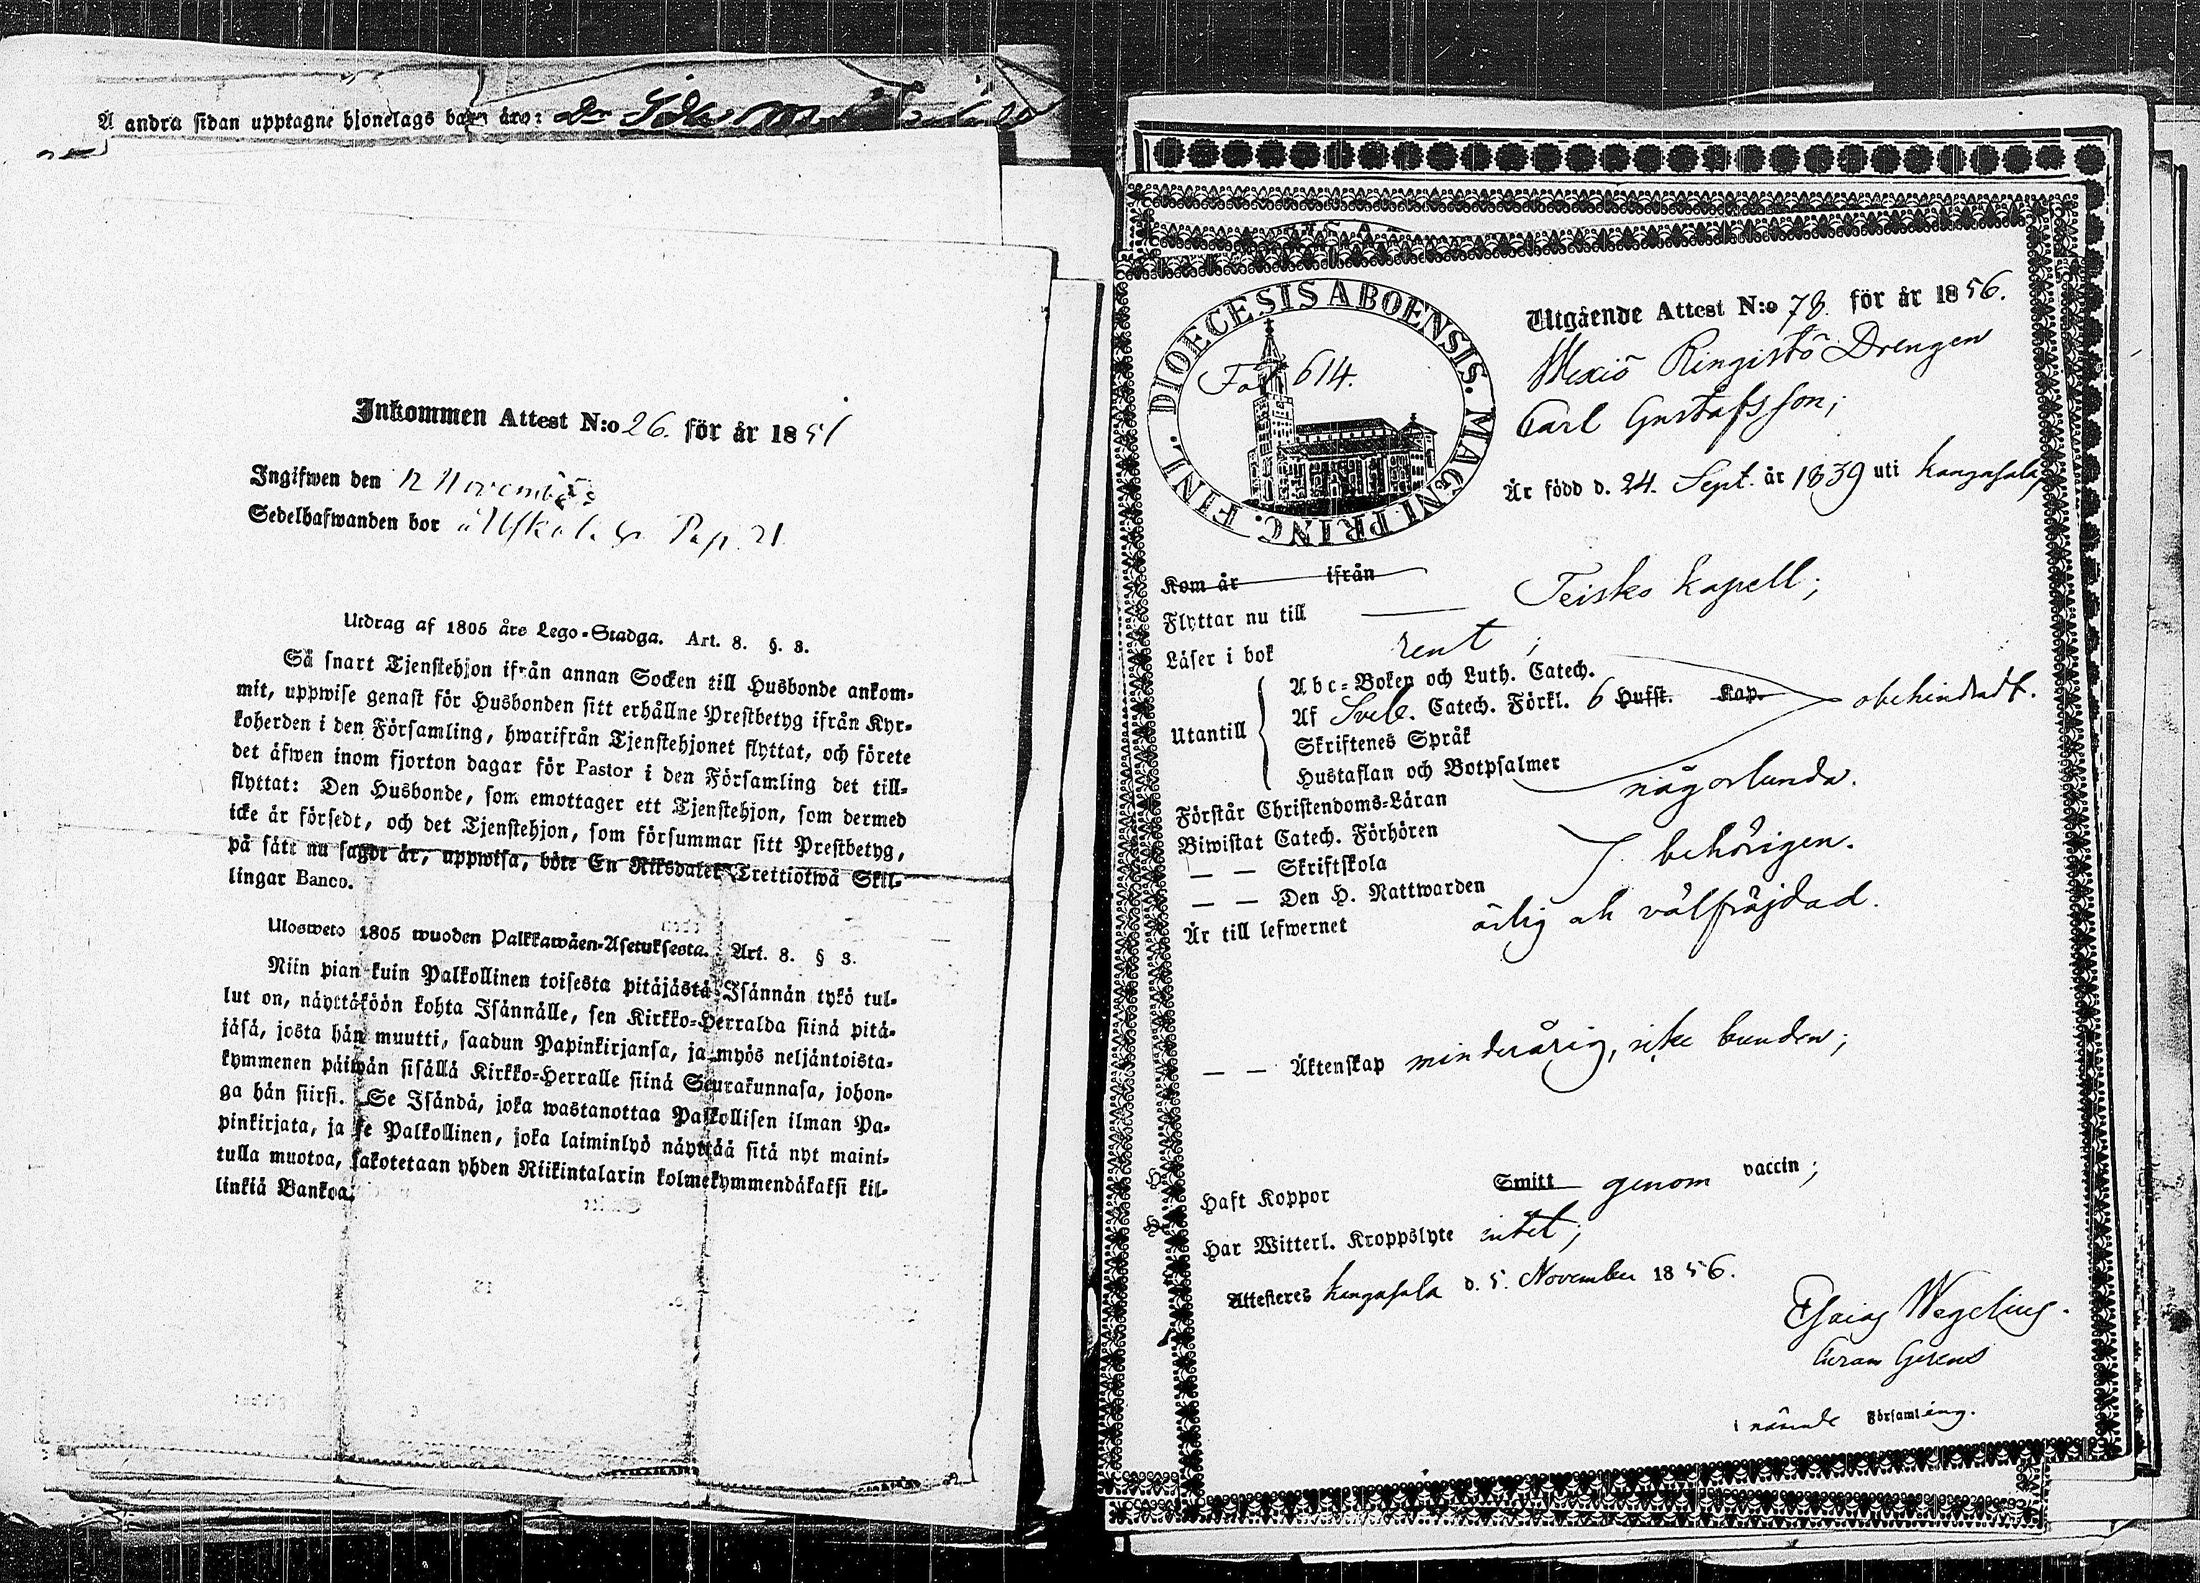 Å andra sidan upptagne hjonelags barn äro:
Inkommen Attest N:o 26. för år 1851
Ingifwen den 12 November
Sedelhafwanden bor Pag. 21
Utdrag af 1805 års Lego-Stadga. Art. 8. §. 3.
Så snart Tjenstehjon ifrån annan Socken till Husbonde ankom-
mit, uppwise genast för Husbonden sitt erhållne Prestbetyg ifrån Kyr-
koherden i den Församling, hwarifrån Tjenstehjonet flyttat, och förete
det äfwen inom fjorton dagar för Pastor i den Församling det till-
flyttat: Den Husbonde, som emottager ett Tjenstehjon, som dermed
icke är försedt, och det Tjenstehjon, som försummar sitt Prestbetyg,
på sätt nu sagdt är, uppwisa, böte En Riksdaler Trettiotwå Skil-
lingar Banco.
Ulosweto 1805 wuoden Palkkawäen-Asetuksesta. Art. 8. § 3.
Niin pian kuin Palkollinen toisesta pitäjästä Isännän tykö tul-
lut on, näyttäköön kohta Isännälle, sen Kirkko-Herralda siinä pitä-
jäsä, josta hän muutti, saadun Papinkirjansa, ja myös neljäntoista-
kymmenen päiwän sisällä Kirkko-Herralle siinä Seurakunnasa, johon-
ga hän siirsi. Se Isändä, joka wastanottaa Palkollisen ilman Pa-
pinkirjata, ja se Palkollinen, joka laiminlyö näyttää sitä nyt maini-
tulla muotoa, sakotetaan yhden Riikintalarin kolmekymmendäkaksi kil-
linkiä Bankoa.
DIOECESIS ABOENSIS. MAGNI PRINC. FINL.
Fol 614.
Utgående Attest N:o 78. för år 1856.
Wexiö Ringistö Drengen
Carl Gustafsson;
Är född d. 24. Sept. år 1839 uti Kangasala,
Kom år ifrån
Flyttar nu till Teisko Kapell;
Läser i bok rent;
Utantill
Abc-Boken och Luth. Catech.
Af Sveb. Catech. Förkl. 6 Hufst. Kap. obehindradt.
Skriftenes Språk
Hustaflan och Botpsalmer
Förstår Christendoms-Läran någorlunda.
Biwistat Catech. Förhören
— — Skriftskola behörigen.
— — Den H. Nattwarden
Är till lefwernet ärlig ock välfräjdad.
— — Äktenskap minderårig, icke bunden;
Haft Koppor Smitt genom vaccin;
Har Witterl. Kroppslyte intet;
Attesteras Kangasala d. 5. November 1856.
Esaias Wegelius.
Curam Gerens
i nämnde Församling.